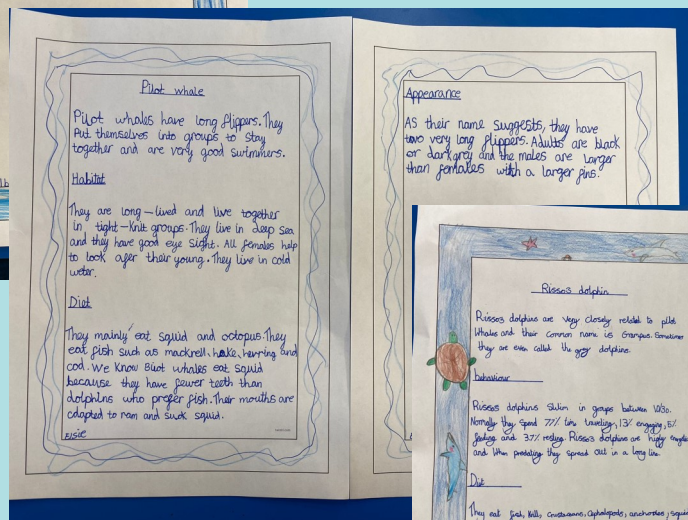 Pilot whale
Pilot whales have long flippers. They
Put themselves into groups to stay
together and are very good swimmers.
Habitat
They are long-lived and live together
in tight-knit groups. They live in deep sea
and they have good eye sight. All females help
to look afer their young. They live in cold
water.
Diet
They mainly eat squid and octopus. They
eat fish such as mackrell, hake, herring and
cod. We know Biiot whales eat squid
because they have fewer teeth than
dolphins who prefer fish. Their mouths are
adapted to ram and suck squid.
Elsie
Appearance
AS their name suggests, they have
two very long flippers. Adults are black
or dark grey and the males are larger
than females with a larger fins.
Risso's dolphin
Risso's dolphins are very closely related to pilot
Whales and their common name is Grampus. Sometimes
they are even called the grey dolphins.
behaviour
Risso's dolphins swim in groups between 10/30.
Normally they spend 77% traveling, 13% engaging, 5%
feeding and 3.7% resting Risso's dolphins are highly
and When predating they spread out in a long line.
Diet
They eat fish, krill, Crustaceans, Cephalopods, anchovies, squid